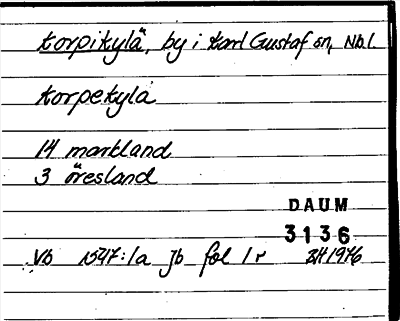 Korpikylä, by i Karl Gustaf sn, Nb.l.
Korpekyla
14 markland
3 öresland
DAUM
3136
Vb 1547:1a Jb fol 1r BH 1976